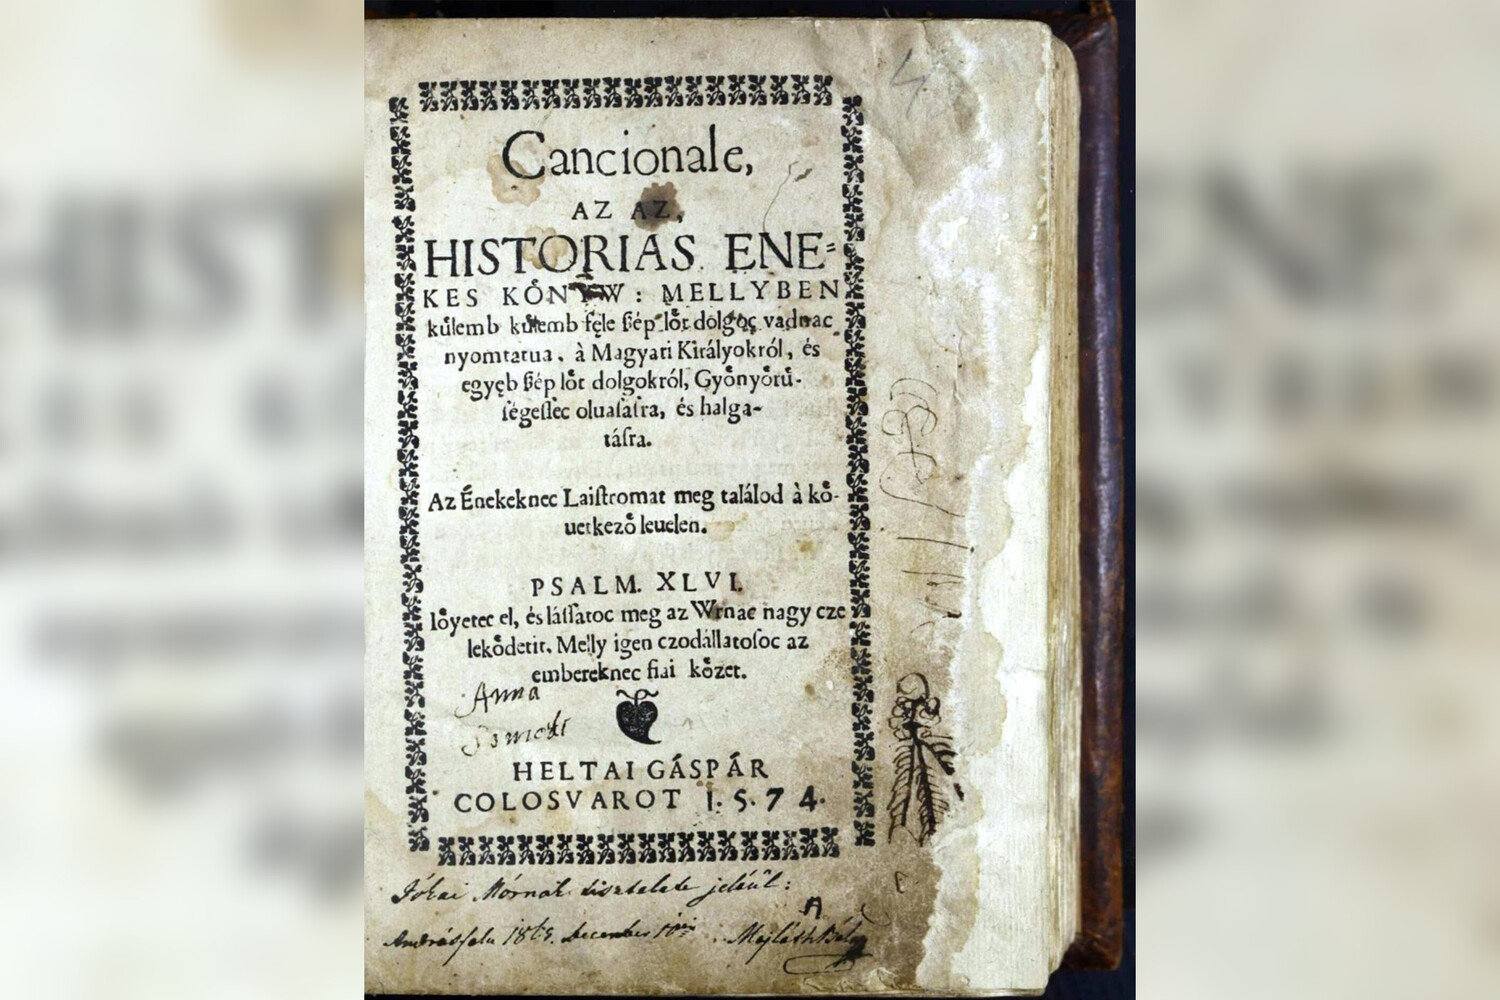 Cancionale,
AZ AZ,
HISTORIAS ENE⸗
KES KOͤNYW : MELLYBEN
kuͤlemb kuͤlemb fęle ßép loͤt dolgoc vadnac
nyomtatua, à Magyari Királyokról, és
egyęb ßép loͤt dolgokról, Gyoͤnyoͤruͤ-
ſégeſſéc oluaſáſra, és halga-
táſra.
Az Énekeknec Laiſtromat meg találod à koͤ-
uetkezoͤ leuelen.
PSALM. XLVI.
Ioͤyetec el, és láſſatoc meg az Wrnac nagy cze
lekoͤdetit, Melly igen czodállatoſoc az
embereknec fiai koͤzet.
Anna
HELTAI GÁSPÁR
COLOSVAROT 1. 5. 7 4.
Jókai Mórnak tisztelete jeléül:
Andrásfalu december Majláth Béla